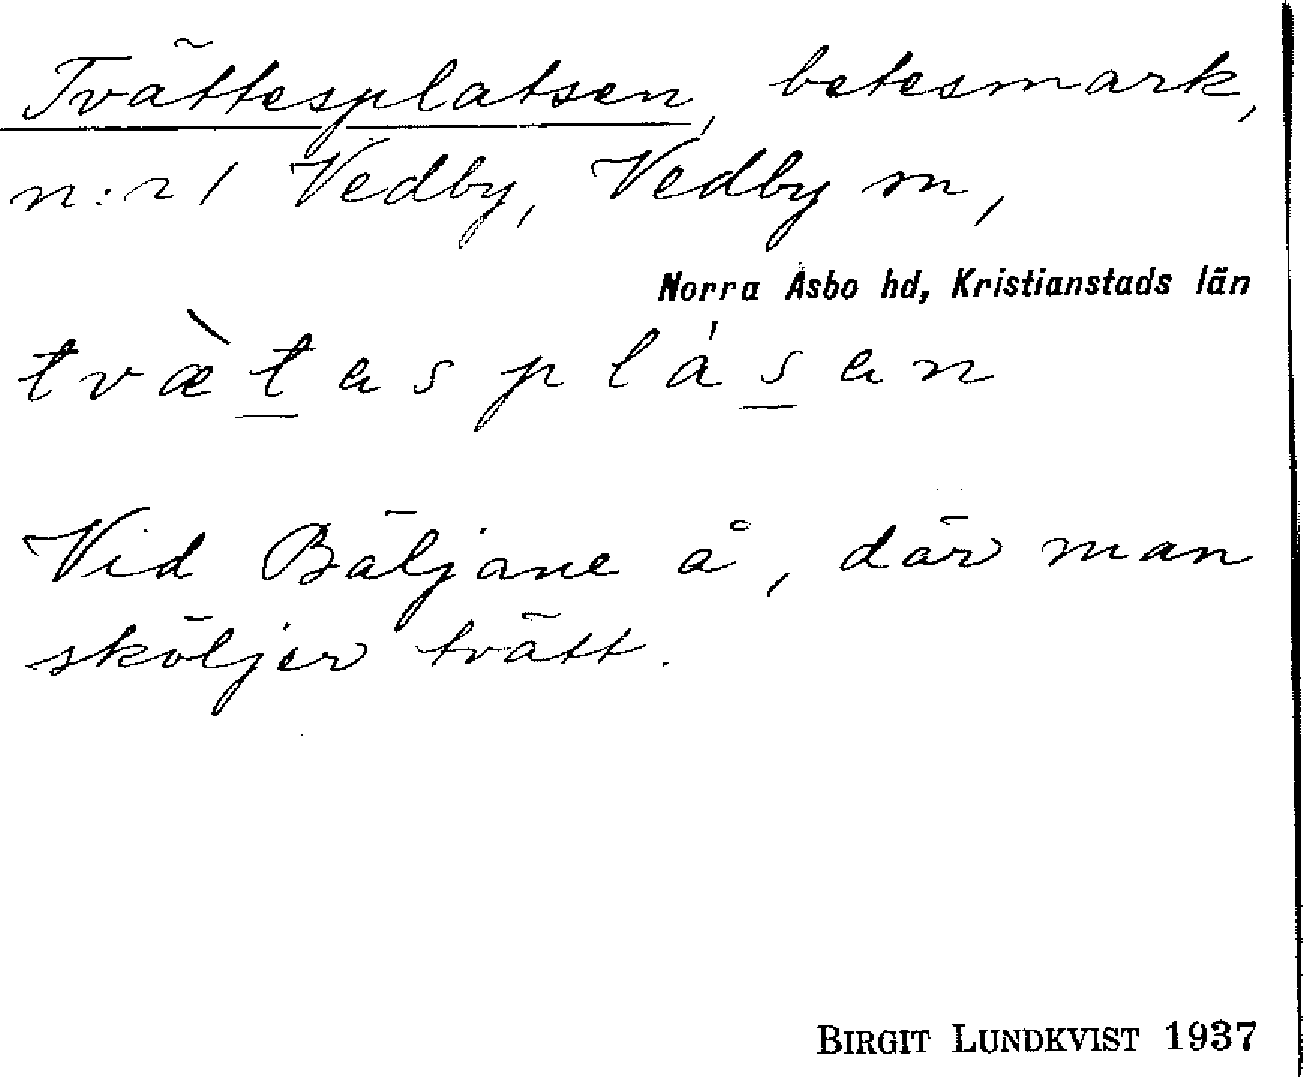 Tvättesplatsen, betesmark,
n:r 1 Vedby, Vedby sn,
Norra Åsbo hd, Kristianstads län
tvæ̀t̲asplásan
Vid Bäljane å, där man
sköljer tvätt.
BIRGIT LUNDKVIST 1937